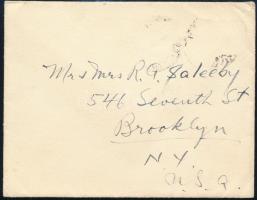 Mr & Mrs R. G. Saleeby
546 Seventh St
Brooklyn
N.Y.
U.S.A.